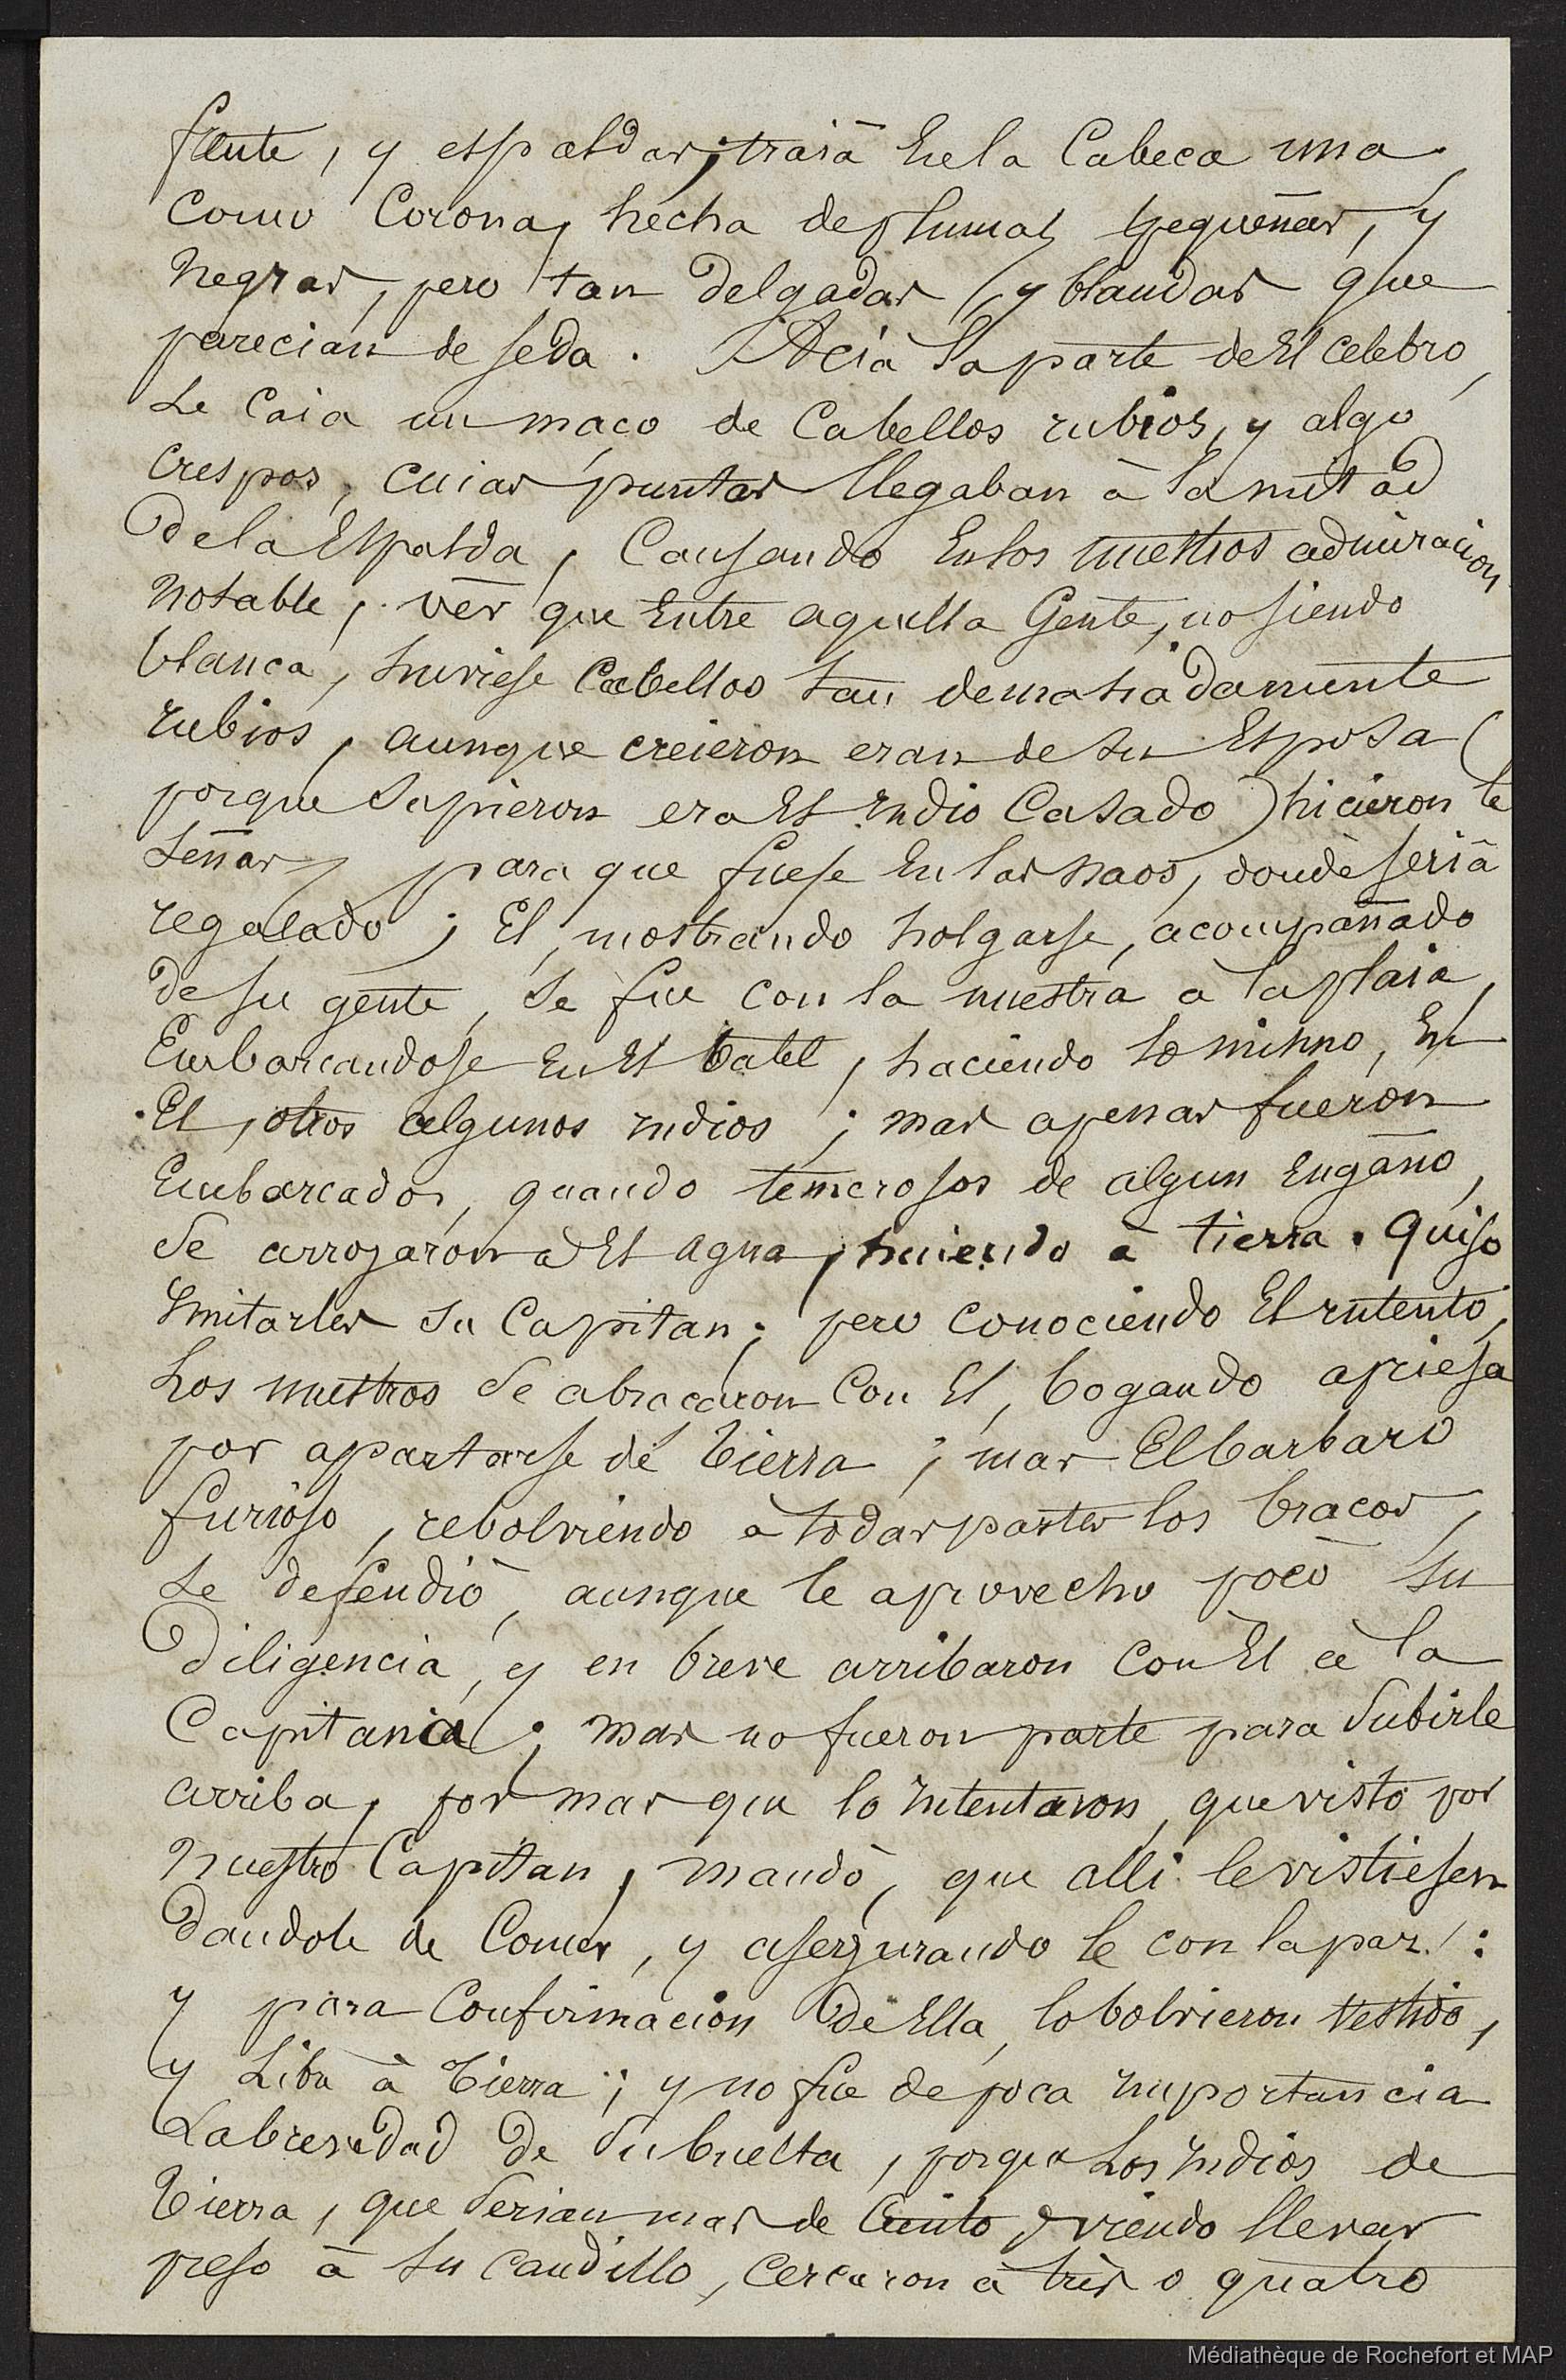 frente, y espaldas; traiā En la Cabeca una
como Corona, hecha de plumas pequeñas, y
negras, pero tan delgadas, y blandas que
parecian de seda. Acia la parte de El celebro,
se caia un maço de Cabellos rubios, y algo
crespos, cuias puntas llegaban à la mitad
de la Espalda, Causando En los nuestros admiracion
notable, ver que Entre aquella Gente, no siendo
blanca, huviese Cabellos tan demasiadamente
rubios, aunque creieron eran de su Esposa (
porque supieron era El Indio Casado) hicieron le
señas, para que fuese En las naos, donde seriā
regalado; El, mostrando holgarse, acompañado
de su gente, se fue con la nuestra a la plaia,
Embarcandose En El batel, haciendo lo mismo, En
El, otros algunos Indios; mas apenas fueron
Embarcados, quando temerosos de algun Engaño,
se arrojaron à El agua, huiendo à tierra. Quiso
Imitarles su Capitan; pero conociendo El Intento,
Los nuestros se abraçaron con El, bogando apriesa
por apartarse de tierra; mas El barbaro
furioso, rebolviendo à todas partes los braços,
se defendiò, aunque le aprovecho poco su
diligencia, y en breve arribaron con El à la
Capitania; mas no fueron parte para subirle
arriba, por mas que lo Intentaron, que visto por
nuestro Capitan, mandò, que alli le vistiesen
dandole de Comer, y asegurando le con la paz:
y para Confirmacion de Ella, lo bolvieron Vestido,
y Libre à tierra; y no fue de poca Importancia
La brevedad de su buelta, porque Los Indios de
tierra, que serian mas de Ciento, viendo llevar
preso à su caudillo, cercaron à tres o quatro
Médiathèque de Rochefort et MAP